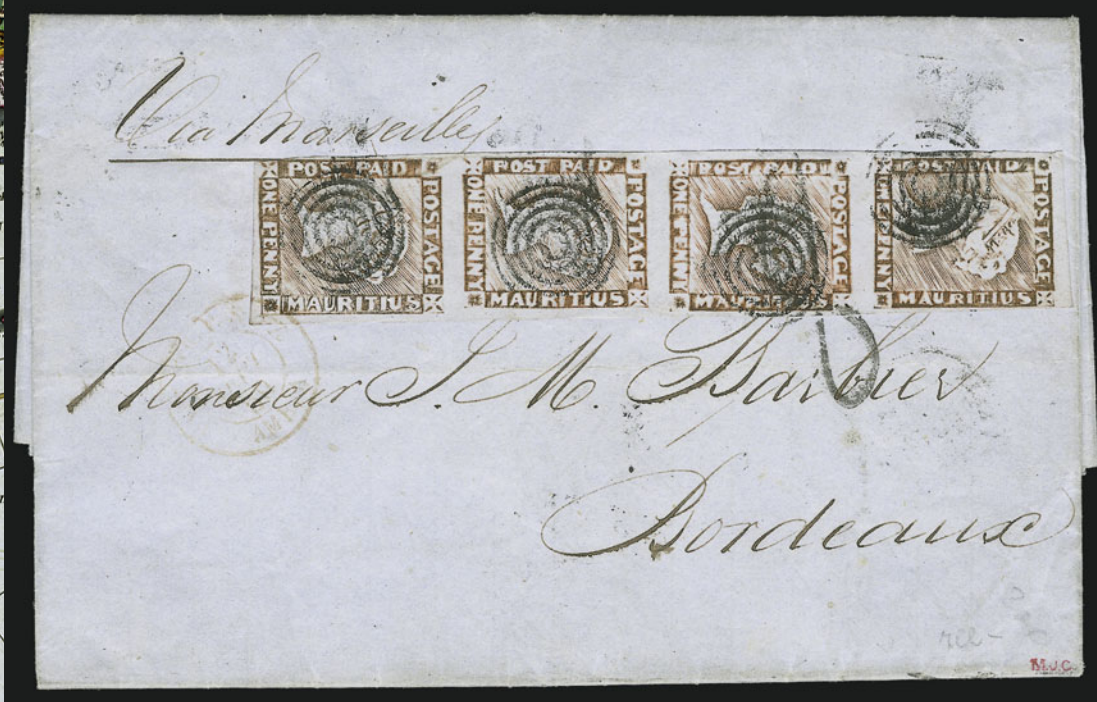 Via Marseilles
POST PAID
ONE PENNY
POSTAGE
MAURITIUS
POST PAID
ONE PENNY
POSTAGE
MAURITIUS
POST PAID
ONE PENNY
POSTAGE
MAURITIUS
POST PAID
POSTAGE
MAURITIUS
Monsieur J. M. Barbier
Bordeaux
M.J.C.